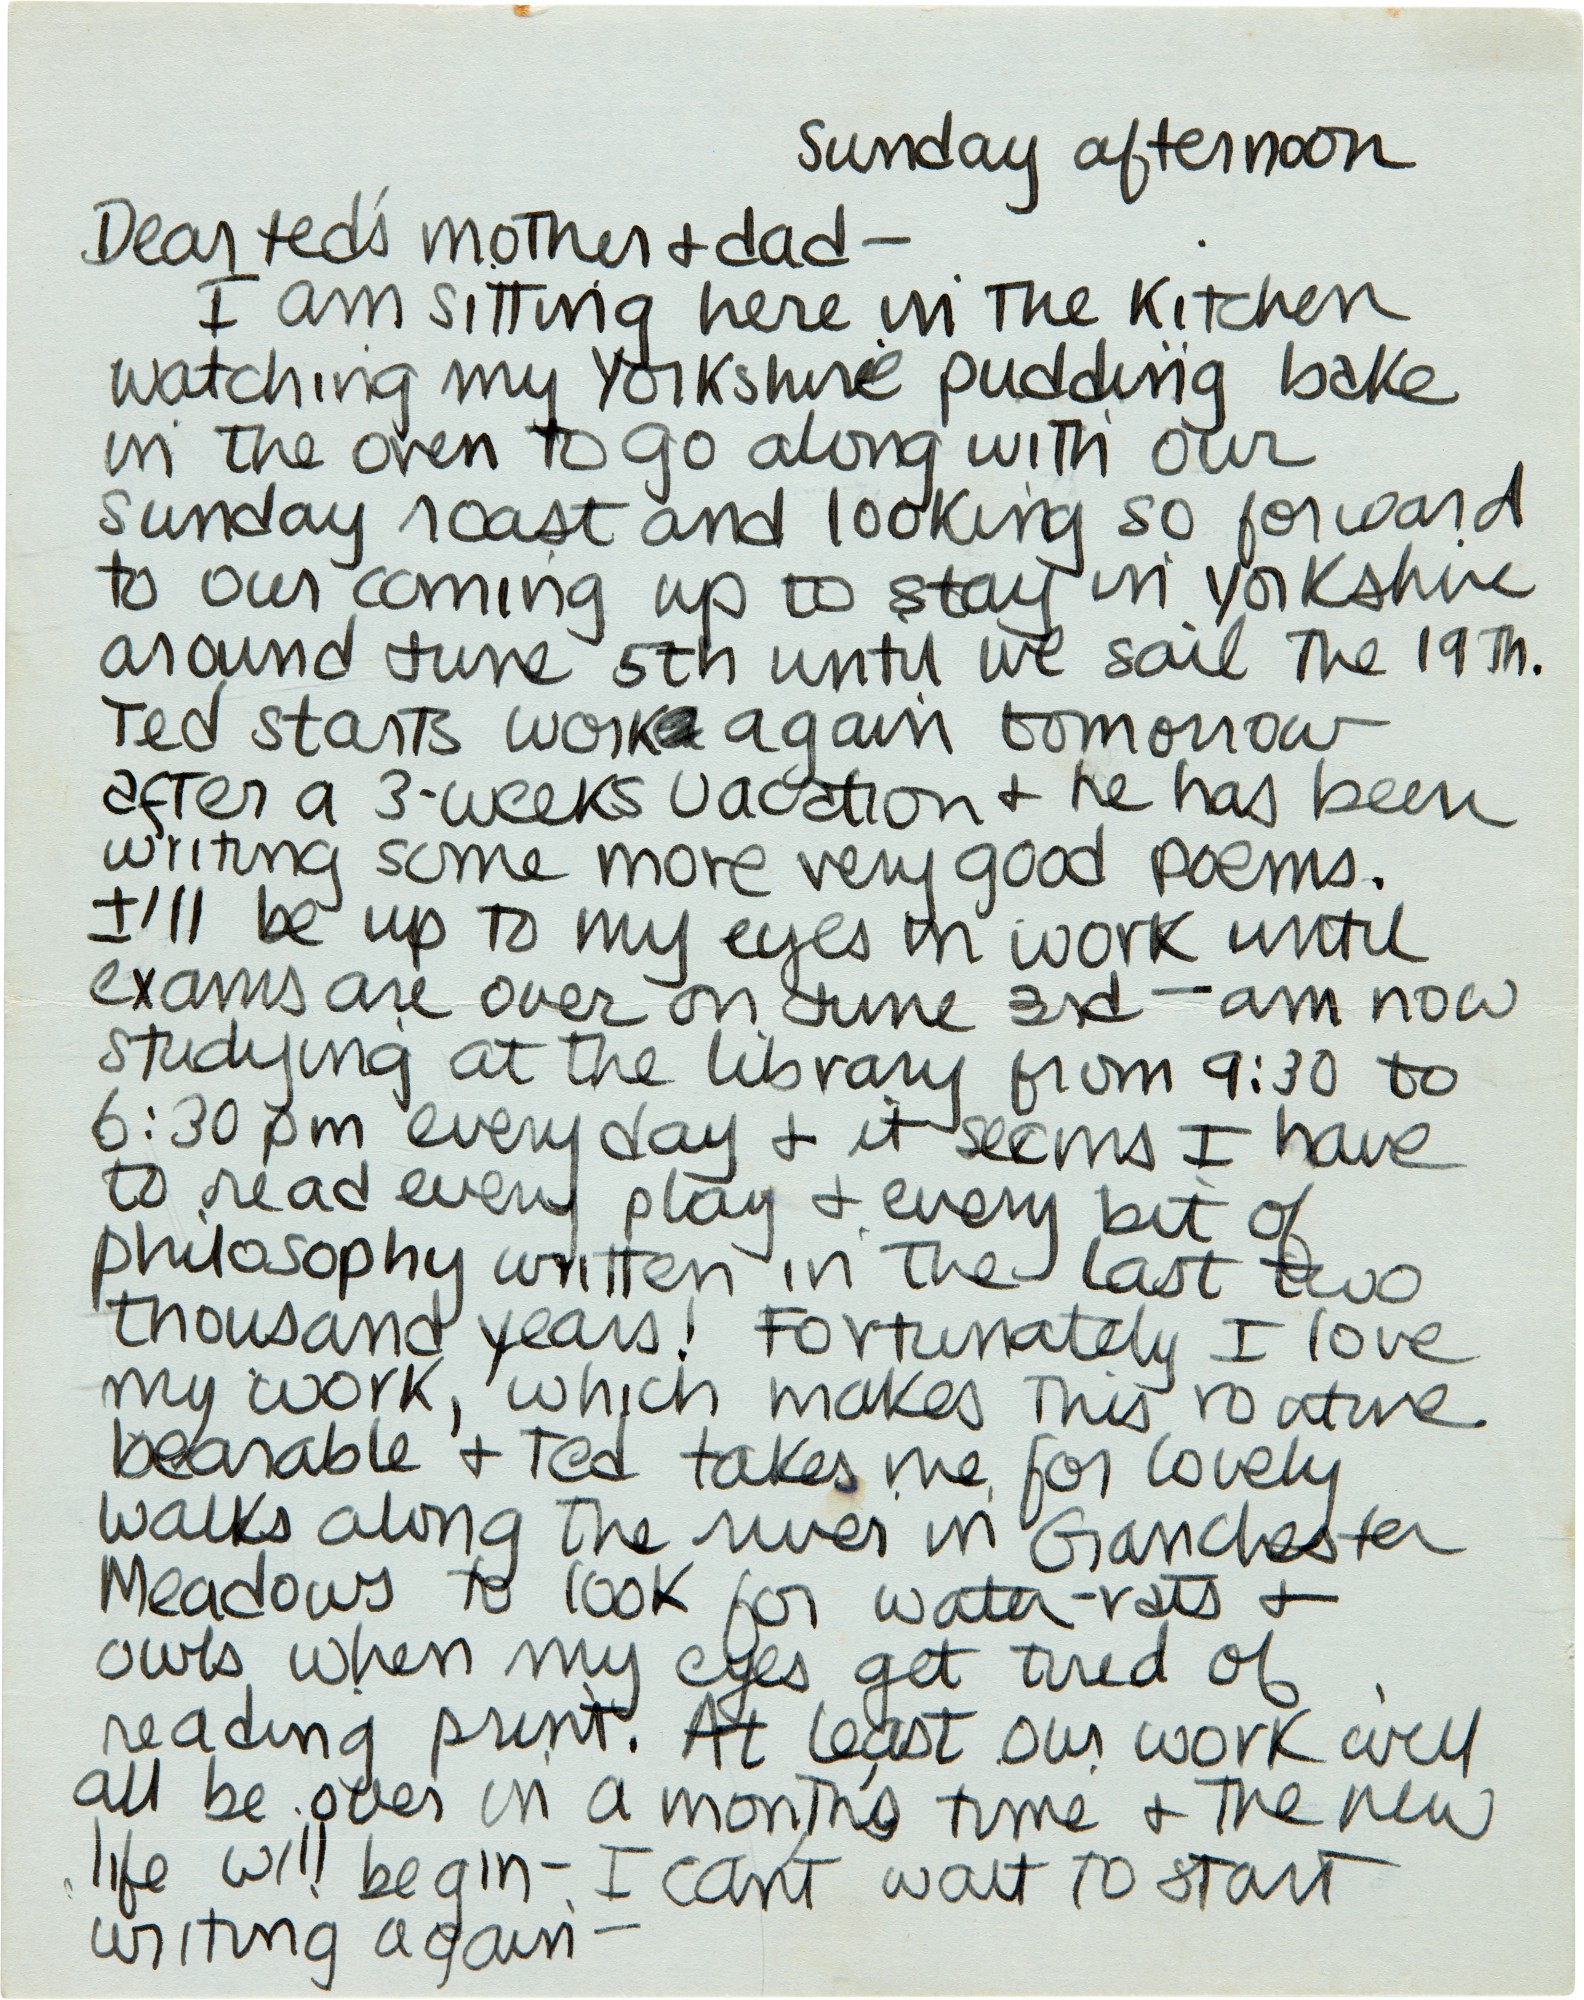 Sunday afternoon
Dear Ted's mother & dad—
I am sitting here in the kitchen
watching my Yorkshire pudding bake
in the oven to go along with our
Sunday roast and looking so forward
to our coming up to stay in Yorkshire
around June 5th until we sail the 19th.
Ted starts work again tomorrow
after a 3-weeks vacation & he has been
writing some more very good poems.
I'll be up to my eyes in work until
exams are over on June 3rd — am now
studying at the library from 9:30 to
6:30 pm every day & it seems I have
to read every play & every bit of
philosophy written in the last two
thousand years! Fortunately I love
my work, which makes this routine
bearable & Ted takes me for lovely
walks along the river in Granchester
Meadows to look for water-rats &
owls when my eyes get tired of
reading print. At least our work will
all be over in a month's time & the new
life will begin — I can't wait to start
writing again —